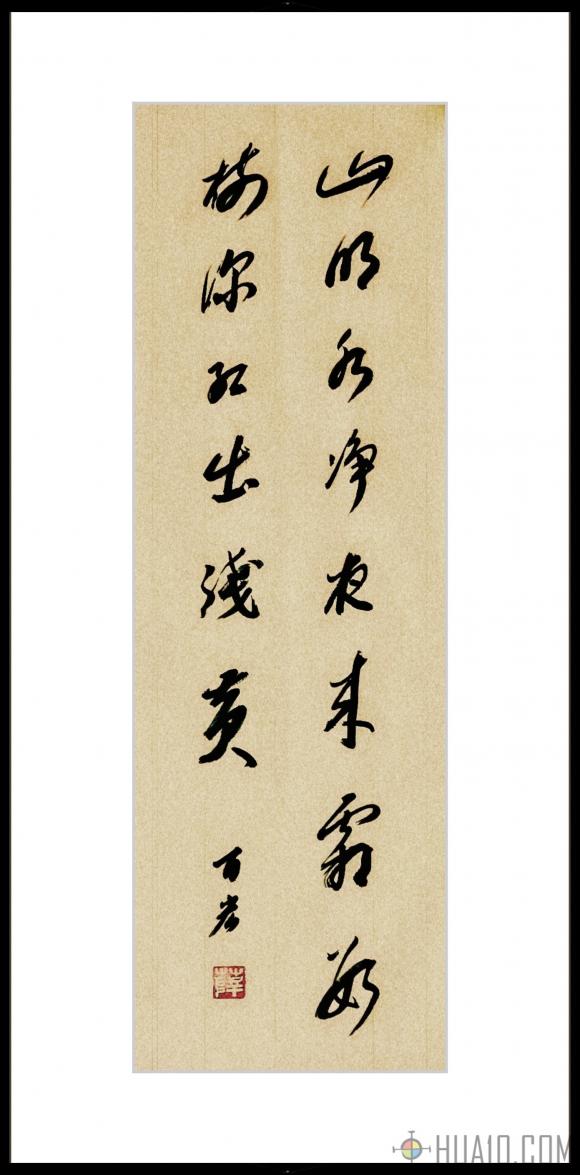 山明水净夜来霜数
树深红出浅黄
薛
HUA10.COM